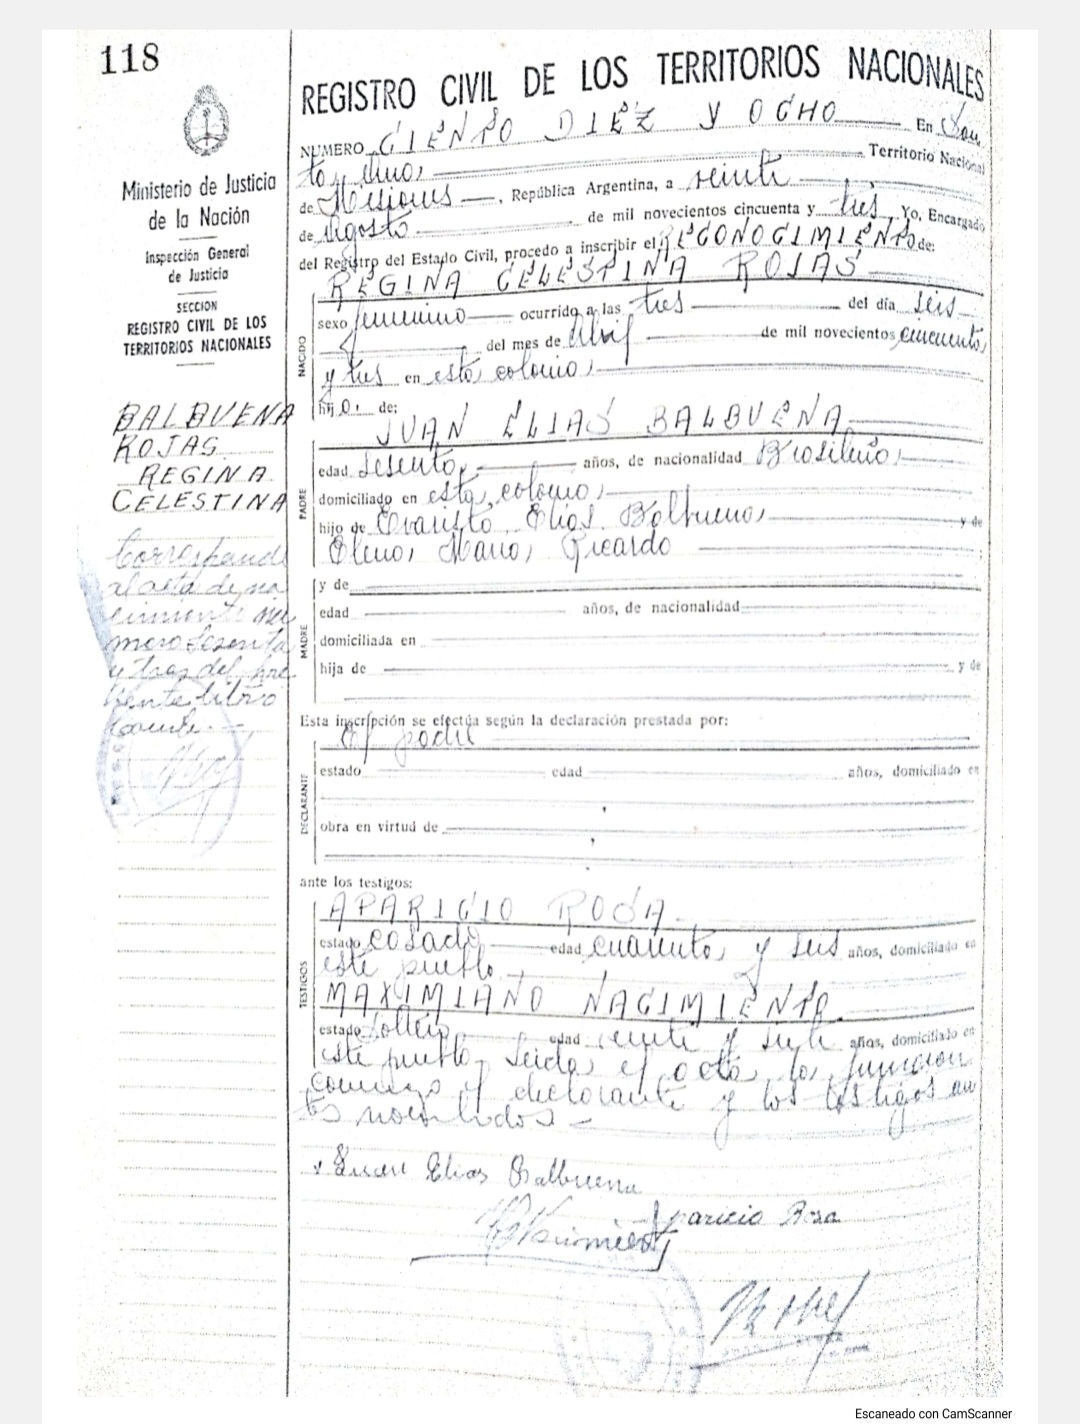 118
Ministerio de Justicia
de la Nación
Inspección General
de Justicia
SECCION
REGISTRO CIVIL DE LOS
TERRITORIOS NACIONALES
BALBUENA
ROJAS
REGINA
CELESTINA
Corresponde
al acta de na
cimiento nu
mero sesenta
y tres del pre
sente libro
REGISTRO CIVIL DE LOS TERRITORIOS NACIONALES
NUMERO CIENTO DIEZ Y OCHO En
Territorio Nacional
de Misiones, República Argentina, a veinte
de Agosto de mil novecientos cincuenta y tres, Yo, Encargado
del Registro del Estado Civil, procedo a inscribir el RECONOCIMIENTO de:
REGINA CELESTINA ROJAS
NACIDO
sexo femenino ocurrido a las tres del día seis
del mes de Abril de mil novecientos cincuenta
y tres en esta colonia
hij a de:
JUAN ELIAS BALBUENA
PADRE
edad sesenta años, de nacionalidad Brasileño
domiciliado en esta colonia
hijo de Evaristo Elias Balbuena y de
Elena Maria Ricardo
MADRE
y de
edad años, de nacionalidad
domiciliada en
hija de y de
Esta inscripción se efectúa según la declaración prestada por:
El padre
DECLARANTE
estado edad años, domiciliado en
obra en virtud de
ante los testigos:
TESTIGOS
APARICIO ROSA
estado casado edad cuarenta y seis años, domiciliado en
este pueblo
MAXIMIANO NACIMIENTO
estado soltero edad veinte y siete años, domiciliado en
este pueblo. Leida el acta, la firmaron
conmigo el declarante y los testigos an
tes nombrados
Juan Elias Balbuena
Aparicio Rosa
Escaneado con CamScanner